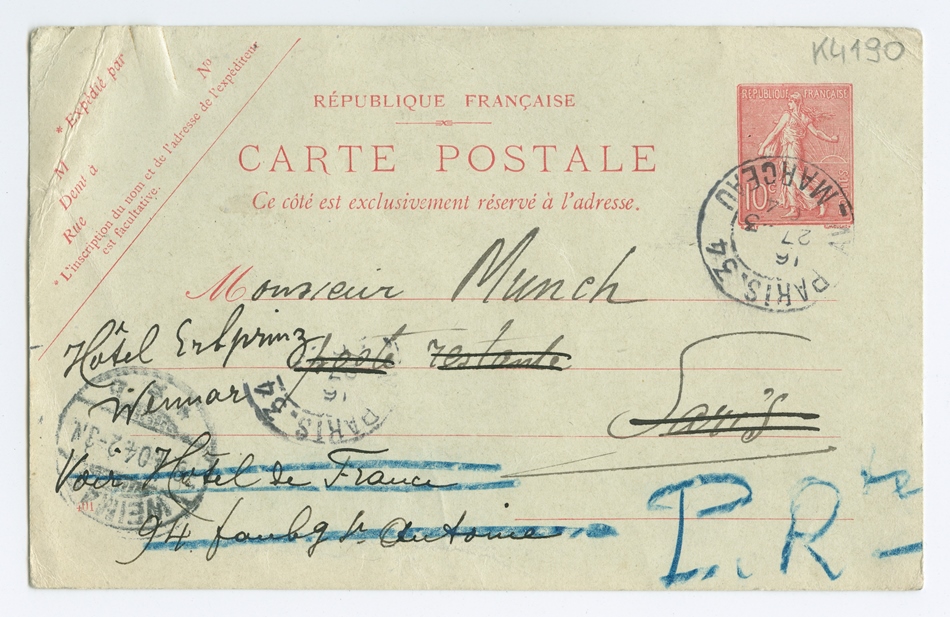 K4190
* Expédié par
M
Demt à
Rue
No
* L'inscription du nom et de l'adresse de l'expéditeur
est facultative.
RÉPUBLIQUE FRANÇAISE
CARTE POSTALE
Ce côté est exclusivement réservé à l'adresse.
REPUBLIQUE FRANÇAISE
10c
PARIS.34
AV-MARCEAU
16
27
3
Monsieur Munch
Hôtel Erbprinz
poste restante
Weimar
Paris
PARIS.34
16
27
WEIMAR
04.2-3N
Voir Hotel de France
94 faubg St Antoine
P. Rte